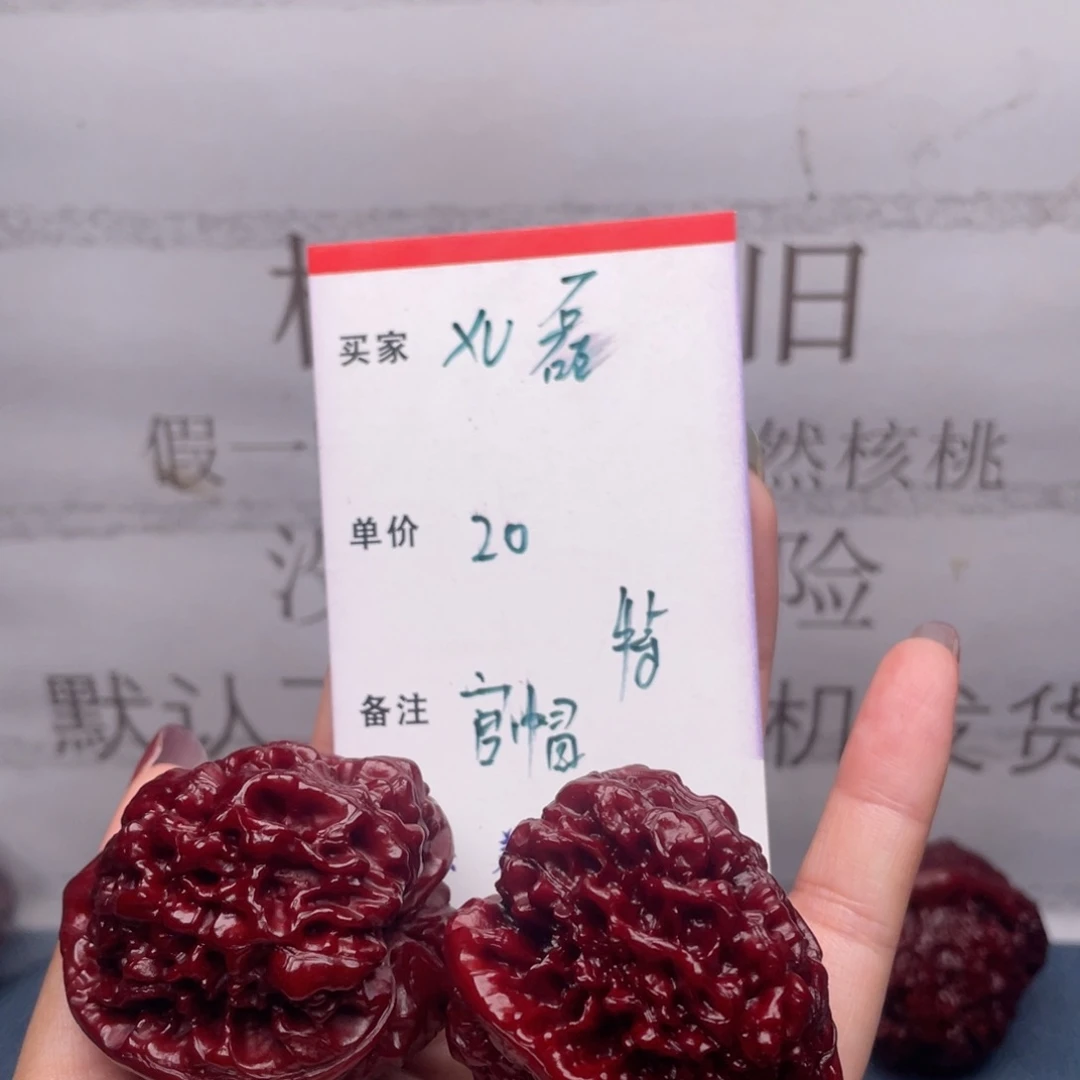 旧
买家 XU磊
假一 然核桃
单价 20
险
特
备注 官帽
默认 机发货